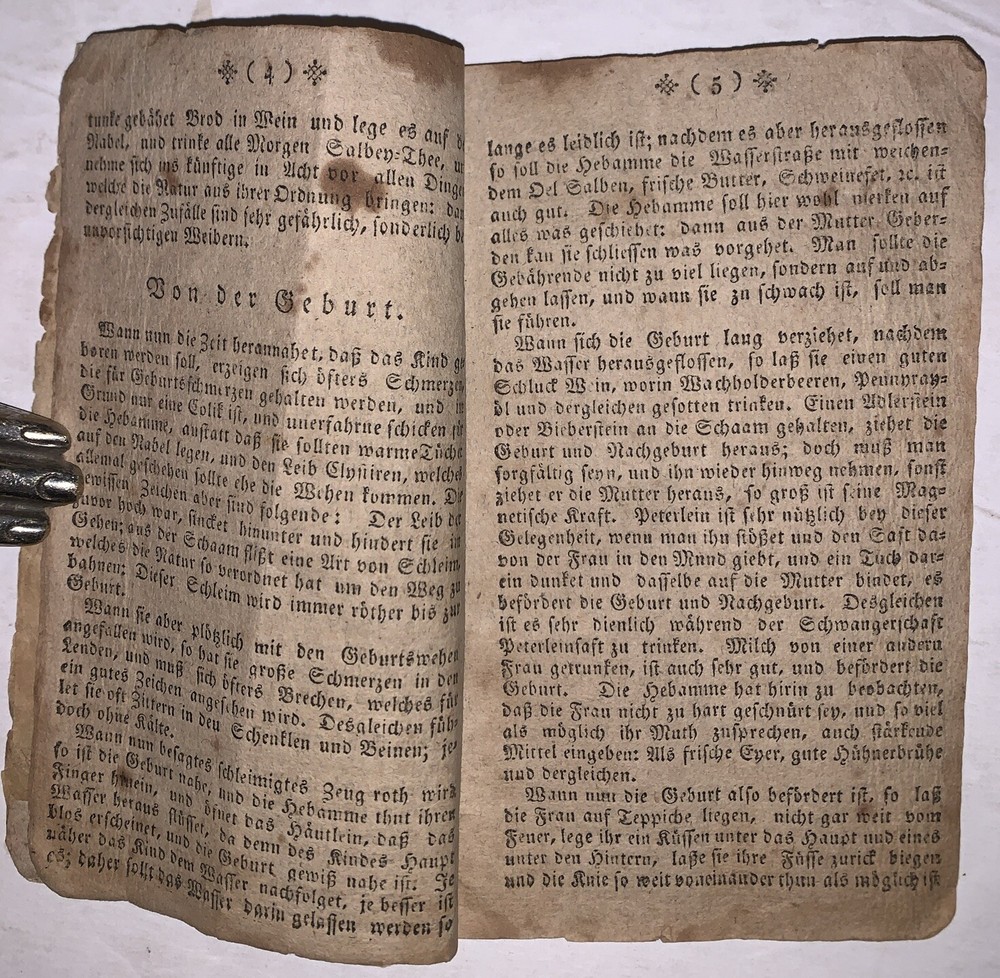 ( 4 )
tunke gebähet Brod in Wein und lege es auf
Nabel, und trinke alle Morgen Salbey-Thee,
nehme sich ins künftige in Acht vor allen Dinge
welche die Natur aus ihrer Ordnung bringen:
dergleichen Zufälle sind sehr gefährlich, sonderlich
unvorsichtigen Weibern.
Von der Geburt.
Wann nun die Zeit herannahet, daß das Kind
boren werden soll, erzeigen sich öfters Schmerzen
die für Geburtsschmerzen gehalten werden, und
Grund nur eine Colik ist, und unerfahrne schicken
die Hebamme, anstatt daß sie sollten warme Tüche
auf den Nabel legen, und den Leib Clystiren, welches
allemal geschehen sollte ehe die Wehen kommen.
gewissen Zeichen aber sind folgende: Der Leib
zuvor hoch war, sincket hinunter und hindert sie
Gehen; aus der Schaam flißt eine Art von Schleim,
welches die Natur so verordnet hat um den Weg zu
bahnen; Dieser Schleim wird immer röther bis zur
Geburt.
Wann sie aber plötzlich mit den Geburtswehen
angefallen wird, so hat sie große Schmerzen in den
Lenden, und muß sich öfters Brechen, welches für
ein gutes Zeichen angesehen wird. Desgleichen füh-
let sie oft Zittern in den Schenklen und Beinen; je-
doch ohne Kälte.
Wann nun besagtes schleimigtes Zeug roth wird
so ist die Geburt nahe, und die Hebamme thut ihren
Finger hinein, und öfnet das Häutlein, daß das
Wasser heraus flüsset, da denn des Kindes Haupt
blos erscheinet, und die Geburt gewiß nahe ist. Je
näher das Kind dem Wasser nachfolget, je besser ist
es; daher sollt das Wasser darin gelassen werden so
( 5 )
lange es leidlich ist; nachdem es aber herausgeflossen
so soll die Hebamme die Wasserstraße mit weichen-
dem Oel Salben, frische Butter, Schweinefet, ꝛc. ist
auch gut. Die Hebamme soll hier wohl merken auf
alles was geschiehet: dann aus der Mutter Geber-
den kan sie schliessen was vorgehet. Man sollte die
Gebährende nicht zu viel liegen, sondern auf und ab-
gehen lassen, und wann sie zu schwach ist, soll man
sie führen.
Wann sich die Geburt lang verziehet, nachdem
das Wasser herausgeflossen, so laß sie einen guten
Schluck Wein, worin Wachholderbeeren, Pennyray-
öl und dergleichen gesotten trinken. Einen Adlerstein
oder Bieberstein an die Schaam gehalten, ziehet die
Geburt und Nachgeburt heraus; doch muß man
sorgfältig seyn, und ihn wieder hinweg nehmen, sonst
ziehet er die Mutter heraus, so groß ist seine Mag-
netische Kraft. Peterlein ist sehr nützlich bey dieser
Gelegenheit, wenn man ihn stößet und den Saft da-
von der Frau in den Mund giebt, und ein Tuch dar-
ein dunket und dasselbe auf die Mutter bindet, es
befördert die Geburt und Nachgeburt. Desgleichen
ist es sehr dienlich während der Schwangerschaft
Peterleinsaft zu trinken. Milch von einer andern
Frau getrunken, ist auch sehr gut, und befördert die
Geburt. Die Hebamme hat hirin zu beobachten,
daß die Frau nicht zu hart geschnürt sey, und so viel
als möglich ihr Muth zusprechen, auch stärkende
Mittel eingeben: Als frische Eyer, gute Hühnerbrühe
und dergleichen.
Wann nun die Geburt also befördert ist, so laß
die Frau auf Teppiche liegen, nicht gar weit vom
Feuer, lege ihr ein Küssen unter das Haupt und eines
unter den Hintern, laße sie ihre Füsse zurick biegen
und die Knie so weit voneinander thun als möglich ist